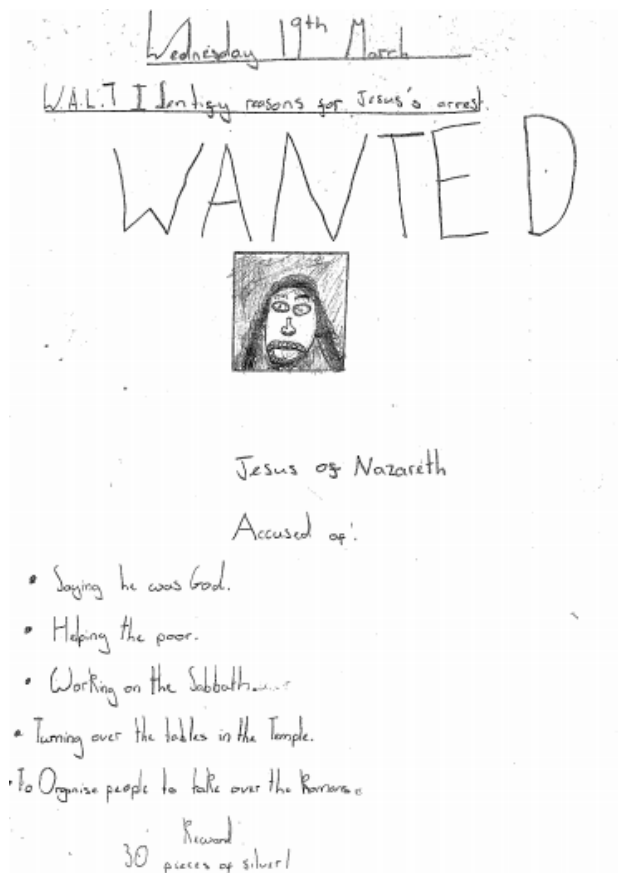 Wednesday 19th March
W.A.L.T Identify reasons for Jesus's arrest.
WANTED
Jesus of Nazareth
Accused of:
• Saying he was God.
• Helping the poor.
• Working on the Sabbath
• Turning over the tables in the Temple.
• To Organise people to take over the Romans.
Reward
30 pieces of silver!